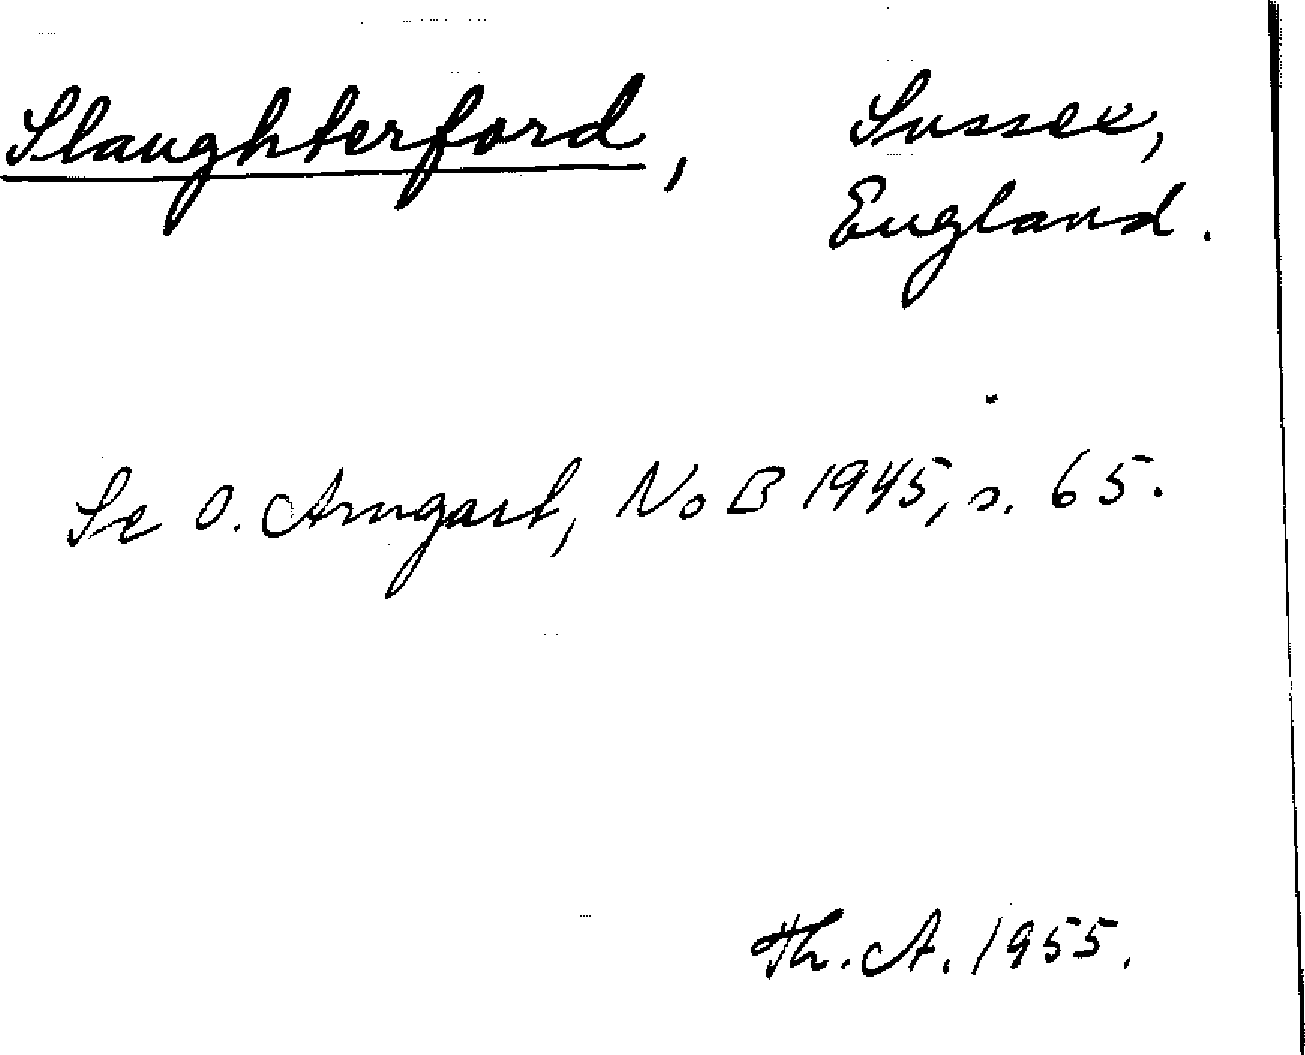 Slaughterford, Sussex,
England.
Se O. Arngart, NoB 1945, s. 65.
Th. A. 1955.